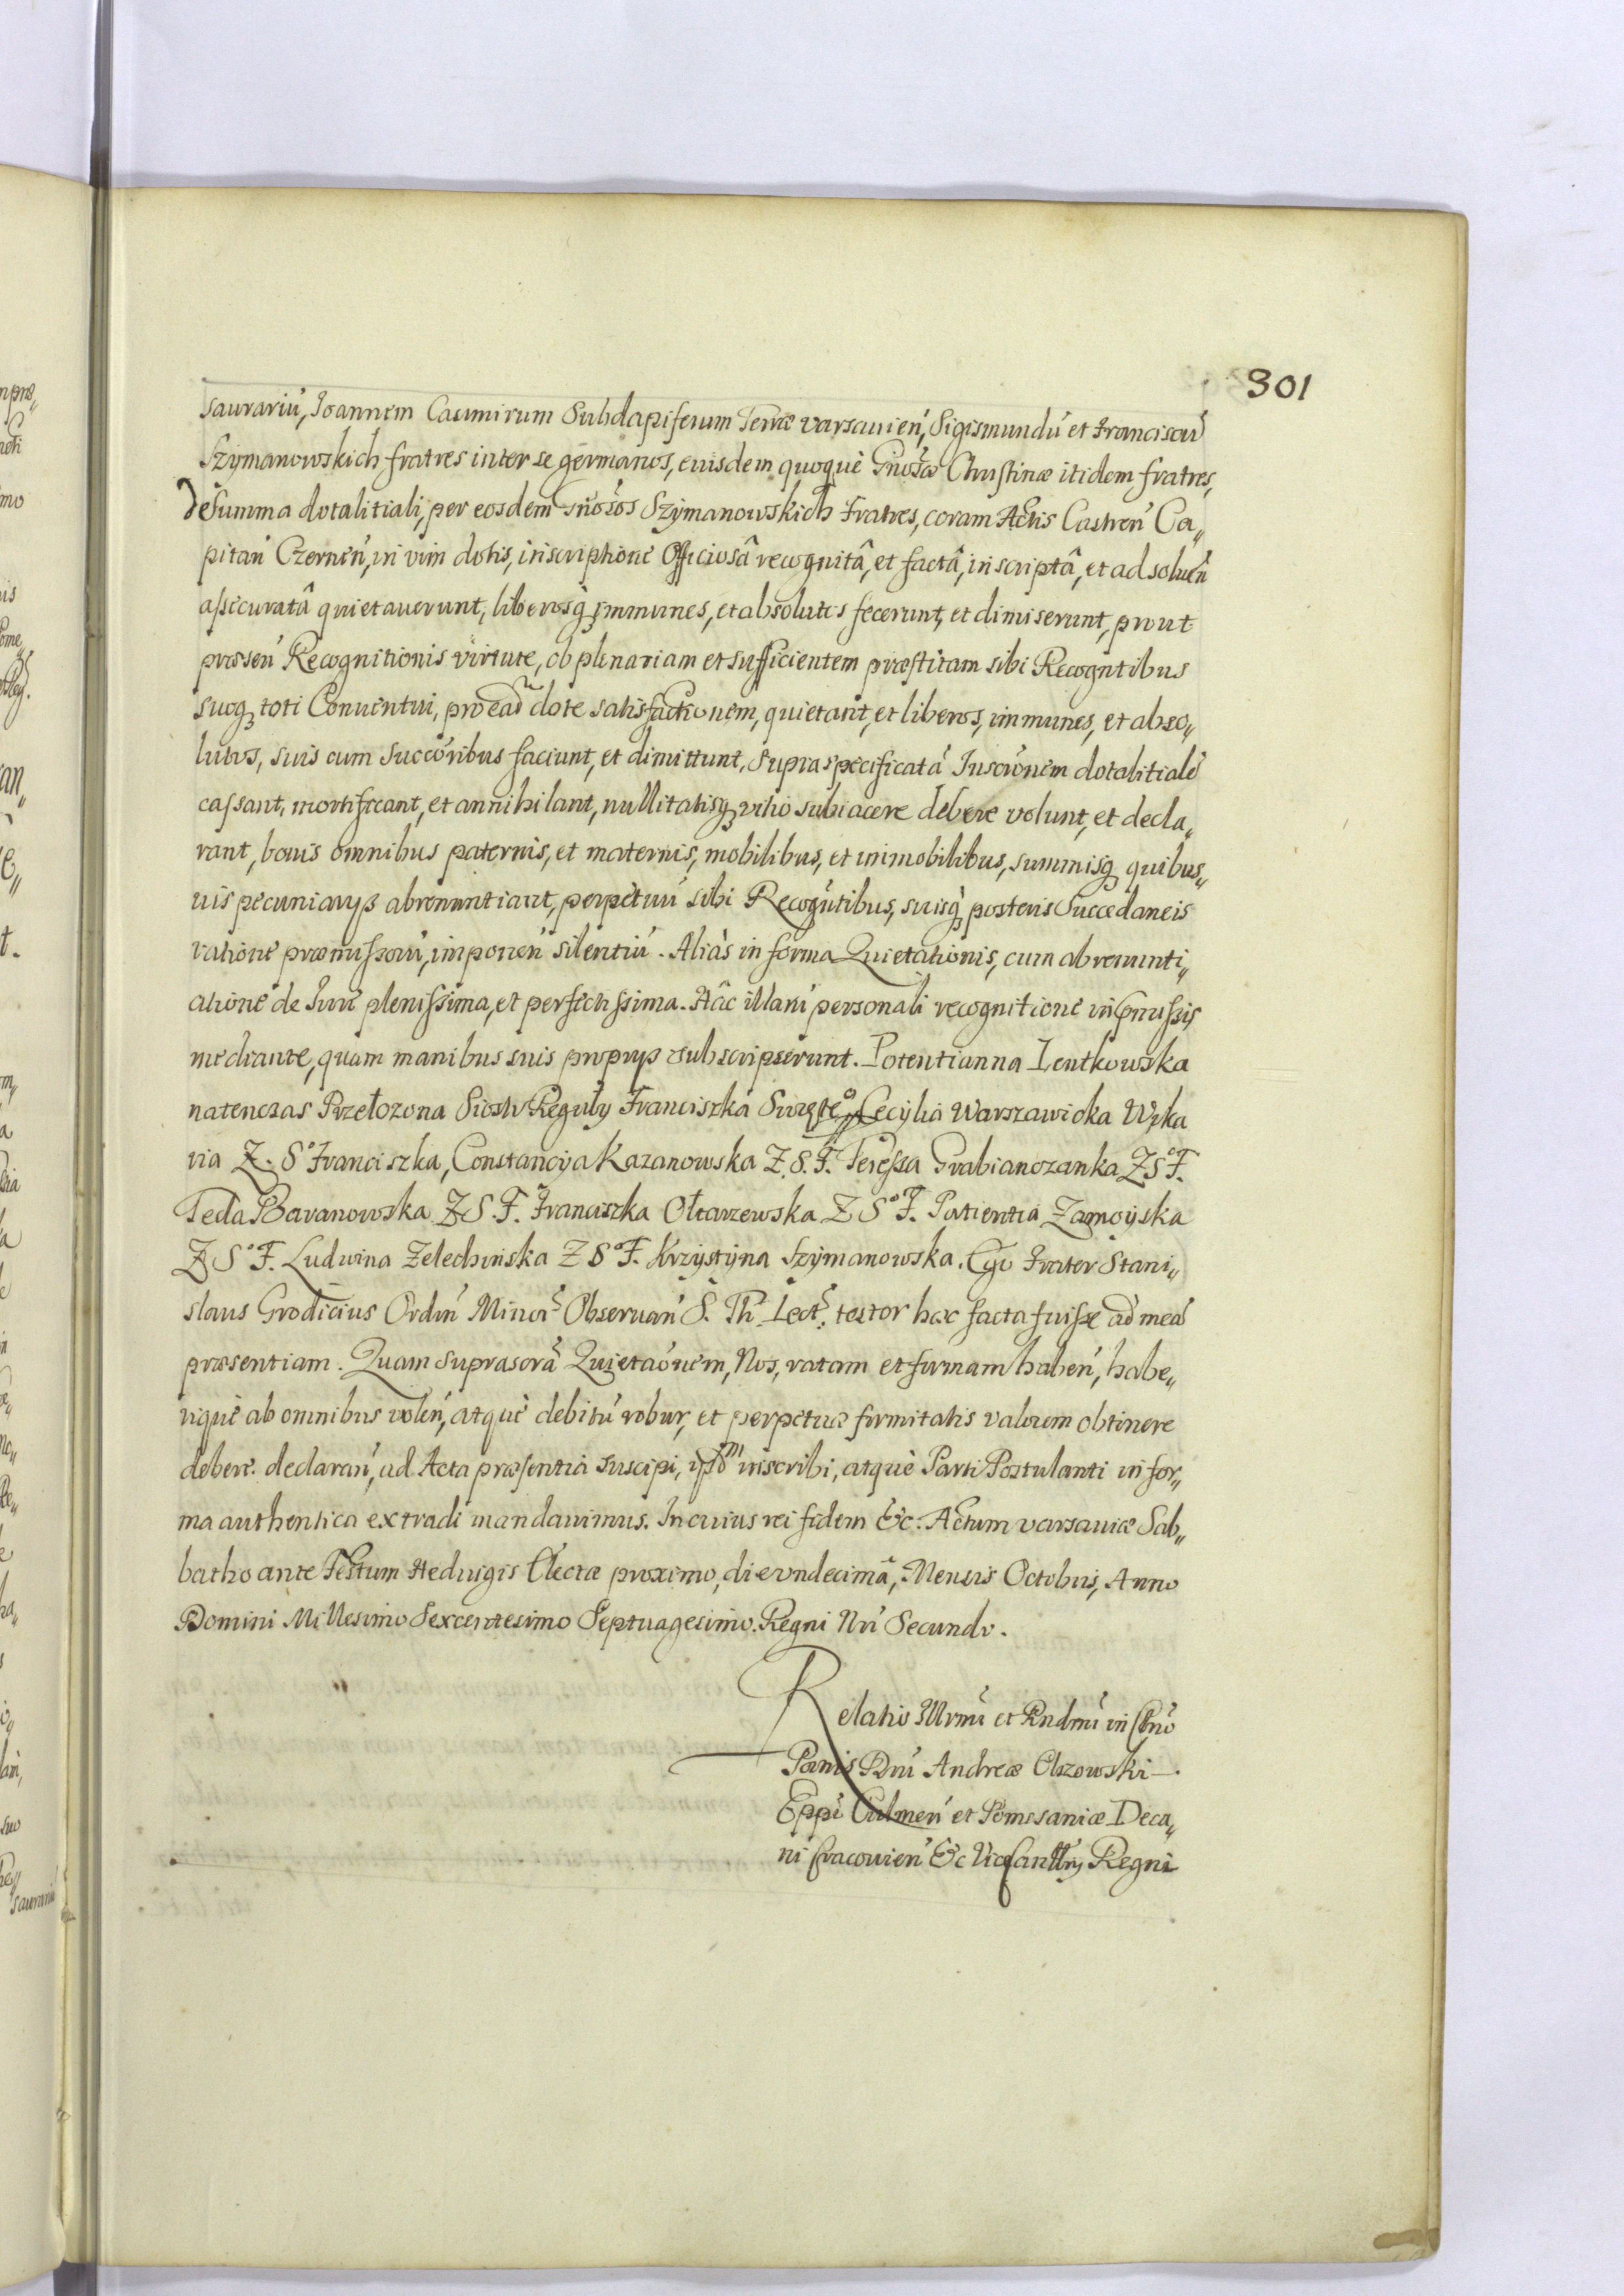 301
saurariú, Joannem Casimirum Subdapiferum Terræ varsauień, Sigismundú et Franciscú
Szymanowskich fratres inter se germanos, eiusdem quoquè Gnosæ Christinæ itidem fratres,
de Summa dotalitiali, per eosdem Gnosos Szymanowskich Fratres, coram Actis Castreń Ca„
pitań Czerneń, in vim dotis, inscriptione Officiosâ recognitâ, et factâ, inscriptâ, et ad solueń
assecuratâ quietauerunt, liberosq immunes, et absolutos fecerunt, et dimiserunt, prout
præseń Recognitionis virtute, ob plenariam et sufficientem præstitam sibi Recogntibus
suoq toti Conuentui, pro ead dote satisfactionem, quietant, et liberos, immunes, et abso„
lutos, suis cum Succoribus faciunt, et dimittunt, Supraspecificatá Inscrónem dotalitialé
cassant, mortificant, et annihilant, nullitatisq vitio subiacere debere volunt, et decla„
rant, bonis omnibus paternis, et maternis, mobilibus, et immobilibus, summisq quibus„
uis pecuniarys abrenuntiant, perpetuú sibi Recogntibus, suisq posteris Succedaneis
ratione præmissorú, imponeń silentiú. Aliàs in forma Quietationis, cum abrenunti„
atione de Jure plenissima, et perfectissima. Hâc illarú personali recognitione in præmissis
mediante, quam manibus suis proprys subscripserunt. Potentianna Lentkowska
natenczas Przełozona Siostr Reguły Franciszka Swięte° Cecylia Warszawicka Wika
ria Z. S° Franciszka, Constancya Kazanowska Z. S. F. Teressa Grabianczanka Z S° F.
Tecla Baranowska Z S. F. Franciszka Ołtarzewska Z S° F. Patientia Zamoyska
Z S° F. Ludwina Zelechinska Z S° F. Krzystyna Szymanowska. Ego Frater Stani„
slaus Grodicius Ordiń Minor Obseruań S. Th. Lect. testor hæc facta fuisse ad meá
præsentiam. Quam suprascrá Quietaónem, Nos, ratam et firmam habeń, habe„
riquè ab omnibus voleń, atquè debitú robur, et perpetuæ firmitatis valorem obtinere
debere declarań, ad Acta præsentia suscipi, ysdm inscribi, atquè Parti Postulanti in for„
ma authentica extradi mandauimus. In cuius rei fidem &c. Actum varsauiæ Sab„
batho ante Festum Heduigis Electæ proximo, die vndecimâ, Mensis Octobris, Anno
Domini Millesimo Sexcentesimo Septuagesimo. Regni Nri Secundo.
Relatio Illrmi et Rndmi in Chro
Patris Dni Andreæ Olszowski
Eppi Culmeń et Pomesaniæ Deca„
ni Cracouień &c Vicecancellry Regni